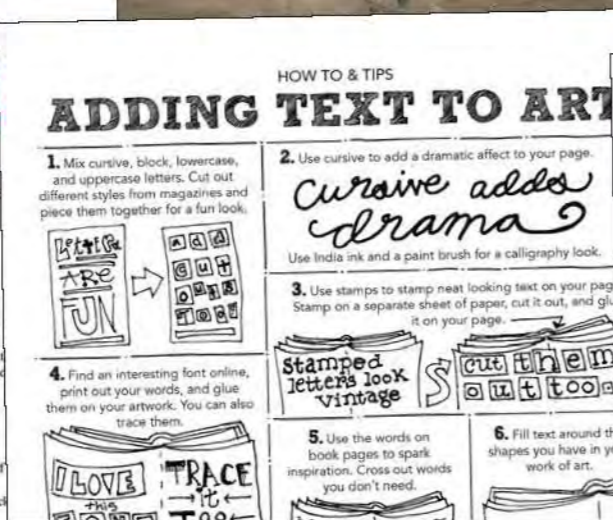 HOW TO & TIPS
ADDING TEXT TO ART
1. Mix cursive, block, lowercase,
and uppercase letters. Cut out
different styles from magazines and
piece them together for a fun look.
LETTERS
ARE
FUN
ADD
CUT
OUTS
TOO!
2. Use cursive to add a dramatic affect to your page.
cursive adds
drama
Use India ink and a paint brush for a calligraphy look.
3. Use stamps to stamp neat looking text on your pag
Stamp on a separate sheet of paper, cut it out, and glu
it on your page.
Stamped
letters look
vintage
cut them
out too.
4. Find an interesting font online,
print out your words, and glue
them on your artwork. You can also
trace them.
I LOVE
this
TRACE
it
5. Use the words on
book pages to spark
inspiration. Cross out words
you don't need.
6. Fill text around th
shapes you have in yo
work of art.